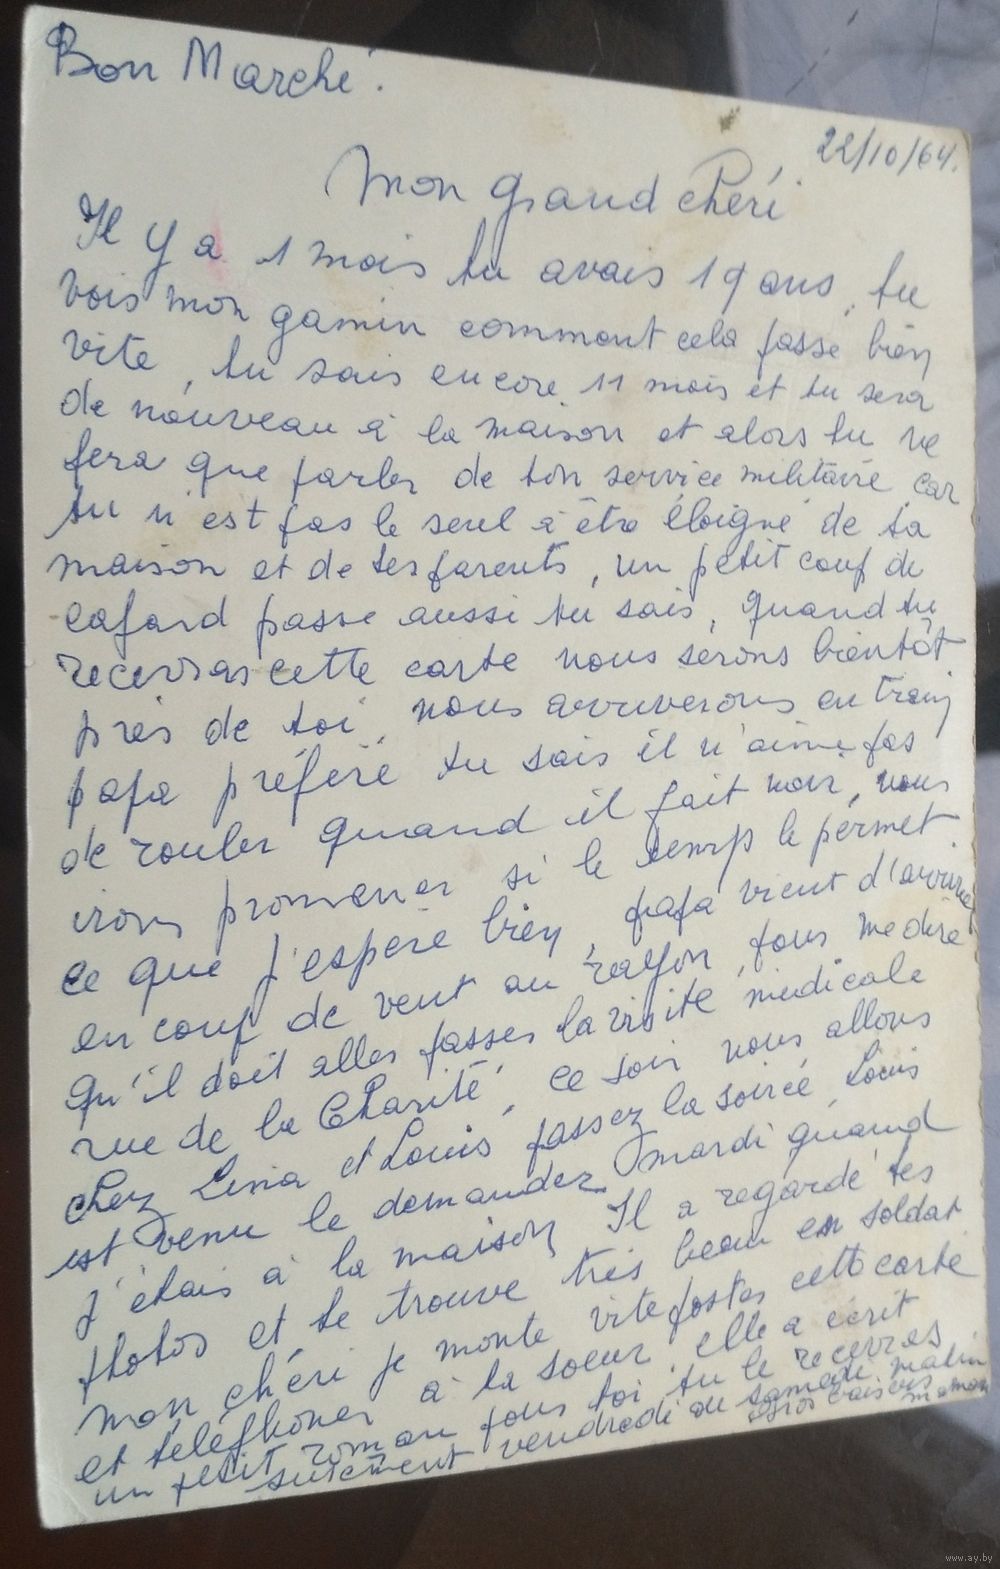 Bon Marché.
22/10/64.
Mon grand chéri
Il y a 1 mois tu avais 19 ans, tu
vois mon gamin comment cela passe bien
vite, tu sais encore 11 mois et tu sera
de nouveau à la maison et alors tu ne
fera que parler de ton service militaire, car
tu n'est pas le seul à être éloigné de ta
maison et de tes parents, un petit coup de
cafard passe aussi tu sais, quand tu
recevras cette carte nous serons bientôt
près de toi, nous arriverons en train
papa préfére tu sais il n'aime pas
de rouler quand il fait noir, nous
irons promener si le temps le permet
ce que j'espère bien, papa vient d'arriver
en coup de vent au rayon, pour me dire
qu'il doit aller passer la visite médicale
rue de la Charité, ce soir nous allons
chez Lina et Louis passez la soirée, Louis
est venu le demander mardi quand
j'étais à la maison Il a regardé tes
photos et te trouve très beau en soldat
mon chéri je monte vite poster cette carte
et téléphoner à ta soeur, elle a écrit
un petit roman pour toi tu le recevras
surement vendredi ou samedi matin
gros baisers
maman
www.ay.by